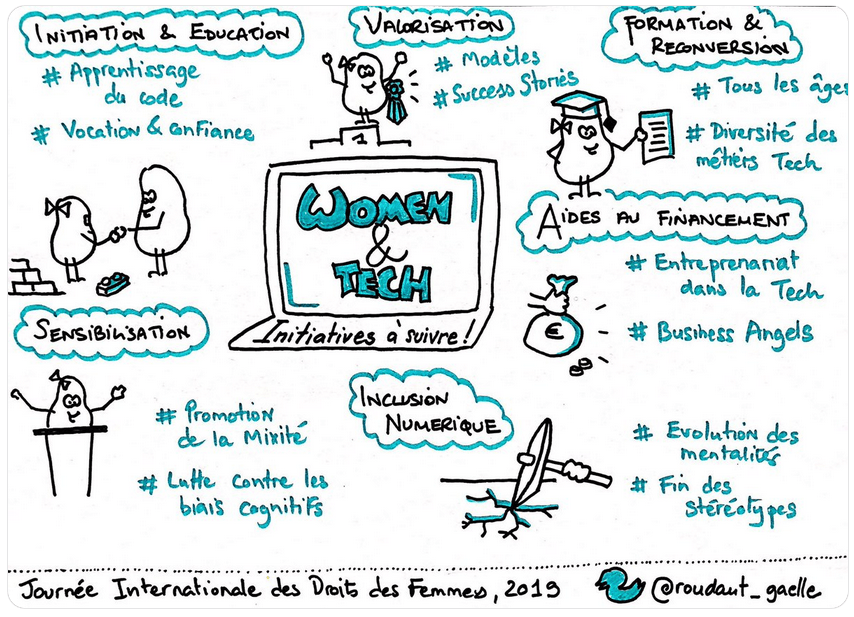 INITIATION & EDUCATION
# Apprentissage
du code
# Vocation & confiance
VALORISATION
# Modèles
# Success Stories
1
FORMATION &
RECONVERSION
# Tous les âges
# Diversité des
métiers Tech
WOMEN
&
TECH
Initiatives à suivre !
AIDES AU FINANCEMENT
# Entreprenariat
dans la Tech
# Business Angels
€
SENSIBILISATION
# Promotion
de la Mixité
# Lutte contre les
biais cognitifs
INCLUSION
NUMERIQUE
# Evolution des
mentalités
# Fin des
stéréotypes
Journée Internationale des Droits des Femmes, 2019
@roudaut_gaelle